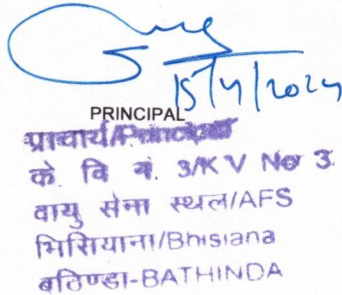 15/4/2024
PRINCIPAL
प्राचार्य/Principal
के. वि. नं. 3/K V No 3.
वायु सेना स्थल/AFS
भिसियाना/Bhisiana
बठिण्डा-BATHINDA